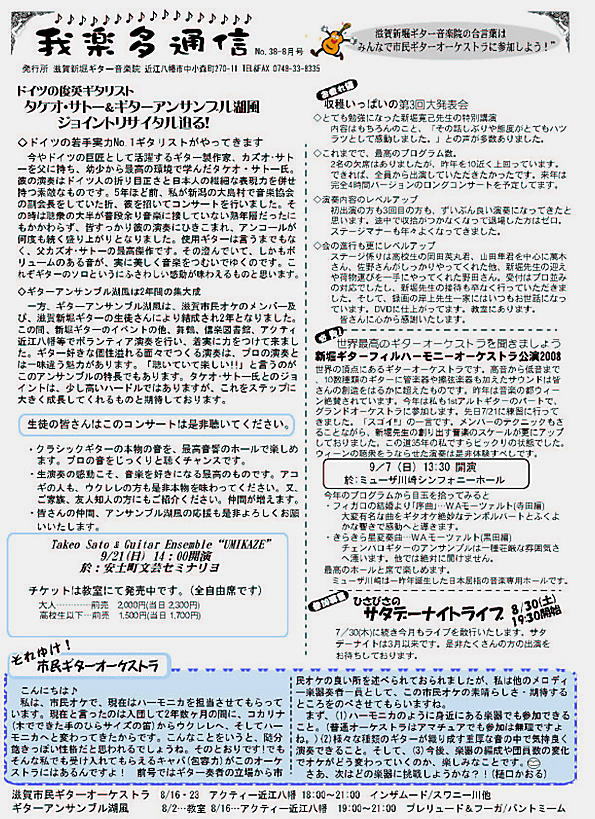 我楽多通信
No.38-8月号
滋賀新堀ギター音楽院の合言葉は
“みんなで市民ギターオーケストラに参加しよう！”
発行所 滋賀新堀ギター音楽院 近江八幡市中小森町270-11 TEL&FAX 0748-33-8335
ドイツの俊英ギタリスト
タケオ・サトー&ギターアンサンブル湖風
ジョイントリサイタル迫る!
◇ドイツの若手実力No.1ギタリストがやってきます
今やドイツの巨匠として活躍するギター製作家、カズオ・サト
ーを父に持ち、幼少から最高の環境で学んだタケオ・サトー氏。
彼の演奏はドイツ人の折り目正さと日本人の繊細な表現力を併せ
持つ素敵なものです。5年ほど前、私が新潟の大島村で音楽協会
の副会長をしていた折、彼を招いてコンサートを行いました。そ
の時は聴衆の大半が普段余り音楽に接していない熟年層だったに
もかかわらず、皆すっかり彼の演奏にひきこまれ、アンコールが
何度も続く盛り上がりとなりました。使用ギターは言うまでもな
く、父カズオ・サトーの最高傑作です。その澄んでいて、しかもボ
リュームのある音が、実に美しく音楽をつむいでゆくのです。こ
れぞギターのソロというにふさわしい感動が味わえるものと思います。
◇ギターアンサンブル湖風は2年間の集大成
一方、ギターアンサンブル湖風は、滋賀市民オケのメンバー及
び、滋賀新堀ギターの生徒さんにより結成され2年となりました。
この間、新堀ギターのイベントの他、舞鶴、信楽図書館、アクティ
近江八幡等でボランティア演奏を行い、着実に力をつけて来まし
た。ギター好きな個性溢れる面々でつくる演奏は、プロの演奏と
は一味違う魅力があります。「聴いていて楽しい!!」と言うのが
このアンサンブルの特長でもあります。タケオ・サトー氏とのジョ
イントは、少し高いハードルではありますが、これをステップに
大きく成長してくれるものと期待しております。
生徒の皆さんはこのコンサートは是非聴いてください。
・クラシックギターの本物の音を、最高音響のホールで楽しめ
ます。プロの音をじっくりと聴くチャンスです。
・生演奏の感動こそ、音楽を好きになる最高のものです。アコ
ギの人も、ウクレレの方も是非本物を味わってください。又、
ご家族、友人知人の方にもご紹介ください。仲間が増えます。
・皆さんの仲間、アンサンブル湖風の応援も是非よろしくお願
いいたします。
Takeo Sato & Guitar Ensemble “UMIKAZE”
9/21(日) 14:00開演
於:安土町文芸セミナリヨ
チケットは教室にて発売中です。(全自由席です)
大人…………前売 2,000円(当日 2,300円)
高校生以下…前売 1,500円(当日 1,700円)
収穫いっぱいの第3回大発表会
◇とても勉強になった新堀寛己先生の特別講演
内容はもちろんのこと、「その話しぶりや態度がとてもハツ
ラツとして感動しました。」との声が多数ありました。
◇これまでで、最高のプログラム数。
2名の欠席はありましたが、昨年を10近く上回っています。
できれば、全員から出演していただきたかったです。来年は
完全4時間バージョンのロングコンサートを予定してます。
◇演奏内容のレベルアップ
初出演の方も3回目の方も、ずいぶん良い演奏になってきたと
思います。途中で収拾がつかなくなって退場した方はゼロ。
ステージマナーも年々よくなってきました。
◇会の進行も更にレベルアップ
ステージ係りは高校生の岡田英丸君、山田隼君を中心に萬木
さん、佐野さんがしっかりやってくれた他、新堀先生の迎え
や荷物運びを一手にやってくれた野田さん。受付はプロ並み
の対応でしたし、新堀先生の接待も卒なく行っていただきま
した。そして、録画の岸上先生一家にはいつもお世話になっ
ています。DVDに仕上がってます。教室にあります。
皆さんに心から感謝いたします。
世界最高のギターオーケストラを聞きましょう
新堀ギターフィルハーモニーオーケストラ公演2008
世界の頂点にあるギターオーケストラです。高音から低音まで
、10数種類のギターに管楽器や擦弦楽器も加えたサウンドは皆
さんの創造をはるかに超えたものです。昨年は音楽の都ウィー
ン絶賛されています。今年は私も1stアルトギターのパートで、
グランドオーケストラに参加します。先日7/21に練習に行って
きました。「スゴイ!」の一言です。メンバーのテクニックもさ
ることながら、新堀先生の創り出す音楽のスケールが更にアップ
しておりました。この道35年の私ですらビックリの状態でした。
ウィーンの聴衆をうならせた演奏は是非体験すべしです。
9/7(日) 13:30 開演
於:ミューザ川崎シンフォニーホール
今年のプログラムから目玉を拾ってみると
・フィガロの結婚より「序曲」…WAモーツァルト(寺田編)
大変有名な曲をギタオケ絶妙なテンポルバートとふくよ
かな響きで感動へと導きます。
・きらきら星変奏曲…WAモーツァルト(黒田編)
チェンバロギターのアンサンブルは一種荘厳な雰囲気さ
へ漂います。他では絶対に聞けません。
最高のホールと席で楽しめます。
ミューザ川崎は一昨年誕生した日本屈指の音楽専用ホールです。
ひさびさの
サタデーナイトライブ
8/30(土)
19:30開始
7/30(木)に続き今月もライブを敢行いたします。サタ
デーナイトは3月以来です。是非たくさんの方の出演を
お待ちしております。
それゆけ!
市民ギターオーケストラ
こんにちは♪
私は、市民オケで、現在はハーモニカを担当させてもらって
います。現在と言ったのは入団して2年数ヶ月の間に、コカリナ
(木でできた手のひらサイズの笛)からウクレレへ、そしてハー
モニカへと変わってきたからです。こんなことをいうと、随分
飽きっぽい性格だと思われるでしょうね。そのとおりです!でも
そんな私でも受け入れてもらえるキャパ(包容力)がこのオーケ
ストラにはあるんですよ! 前号ではギター奏者の立場から市
民オケの良い所を述べられておられましたが、私は他のメロディ
ー楽器奏者一員として、この市民オケの素晴らしさ・期待する
ところをのべさせてもらいますね。
まず、(1)ハーモニカのように身近にある楽器でも参加できる
こと。(普通オーケストラはアマチュアでも参加は無理ですよ
ね。)(2)様々な種類のギターが織り成す重厚な音の中で気持良く
演奏できること。そして、(3)今後、楽器の編成や団員数の変化
でオケがどう変わっていくのか、楽しみなことです。
さあ、次はどの楽器に挑戦しようかな?!(樋口かおる)
滋賀市民ギターオーケストラ 8/16・23 アクティー近江八幡 18:00～21:00 インザムード/スワニー川他
ギターアンサンブル湖風 8/2…教室 8/16…アクティー近江八幡 19:00～21:00 プレリュード&フーガ/パントミーム